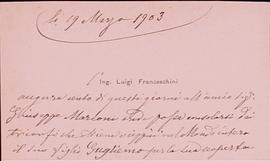 li 19 Marzo 1903
Ing. Luigi Franceschini
augura cento di questi giorni all'amico sig.
Giuseppe Marconi possa consolarsi dei
trionfi che viaggi nel Mondo intero
il suo figlio Guglielmo per la sua scoperta